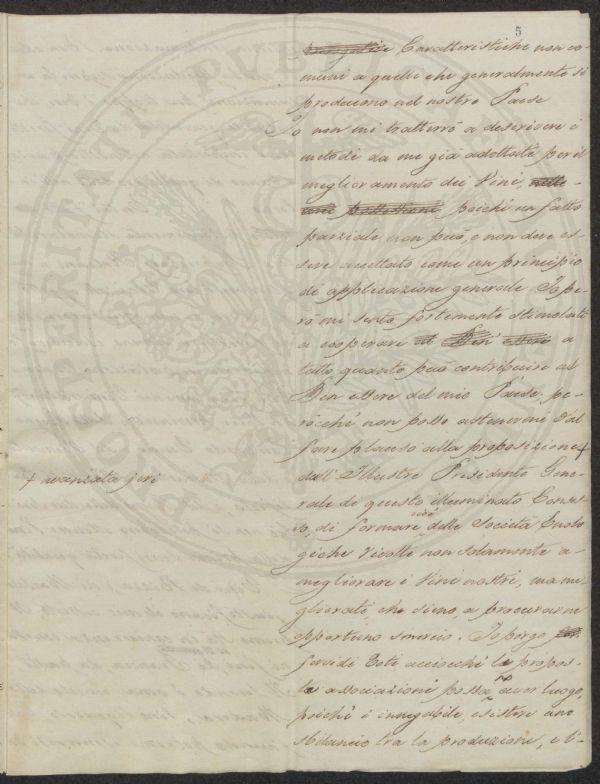 5
Caratteristiche non co-
muni a quelle che generalmente si
producono nel nostro Paese
Io non mi tratterrò a descrivere i
metodi da me già adottati per il
miglioramento dei Vini, nelle
mie possessioni poichè un fatto
parziale non può, e non deve es
sere accettato come un principio
di applicazione generale Io pe-
rò mi sento fortemente stimolato
a cooperare al Ben essere a
tutto quanto può contribuire al
Ben essere del mio Paese, pe-
rocchè non posso astenermi dal
fare plauso alla proposizione +
+ avanzata jeri
dall'Illustre Presidente Gene-
rale di questo illuminato Conses-
so, di formare cioè delle Società Enolo
giche rivolte non solamente a
migliorare i Vini nostri, ma mi
gliorati che sieno, a procurarne
opportuno smercio. Io porgo
fervidi Voti acciocchè le propos-
te associazioni possano aver luogo,
poichè è innegabile, esistere uno
sbilancio tra la produzione, e l'-